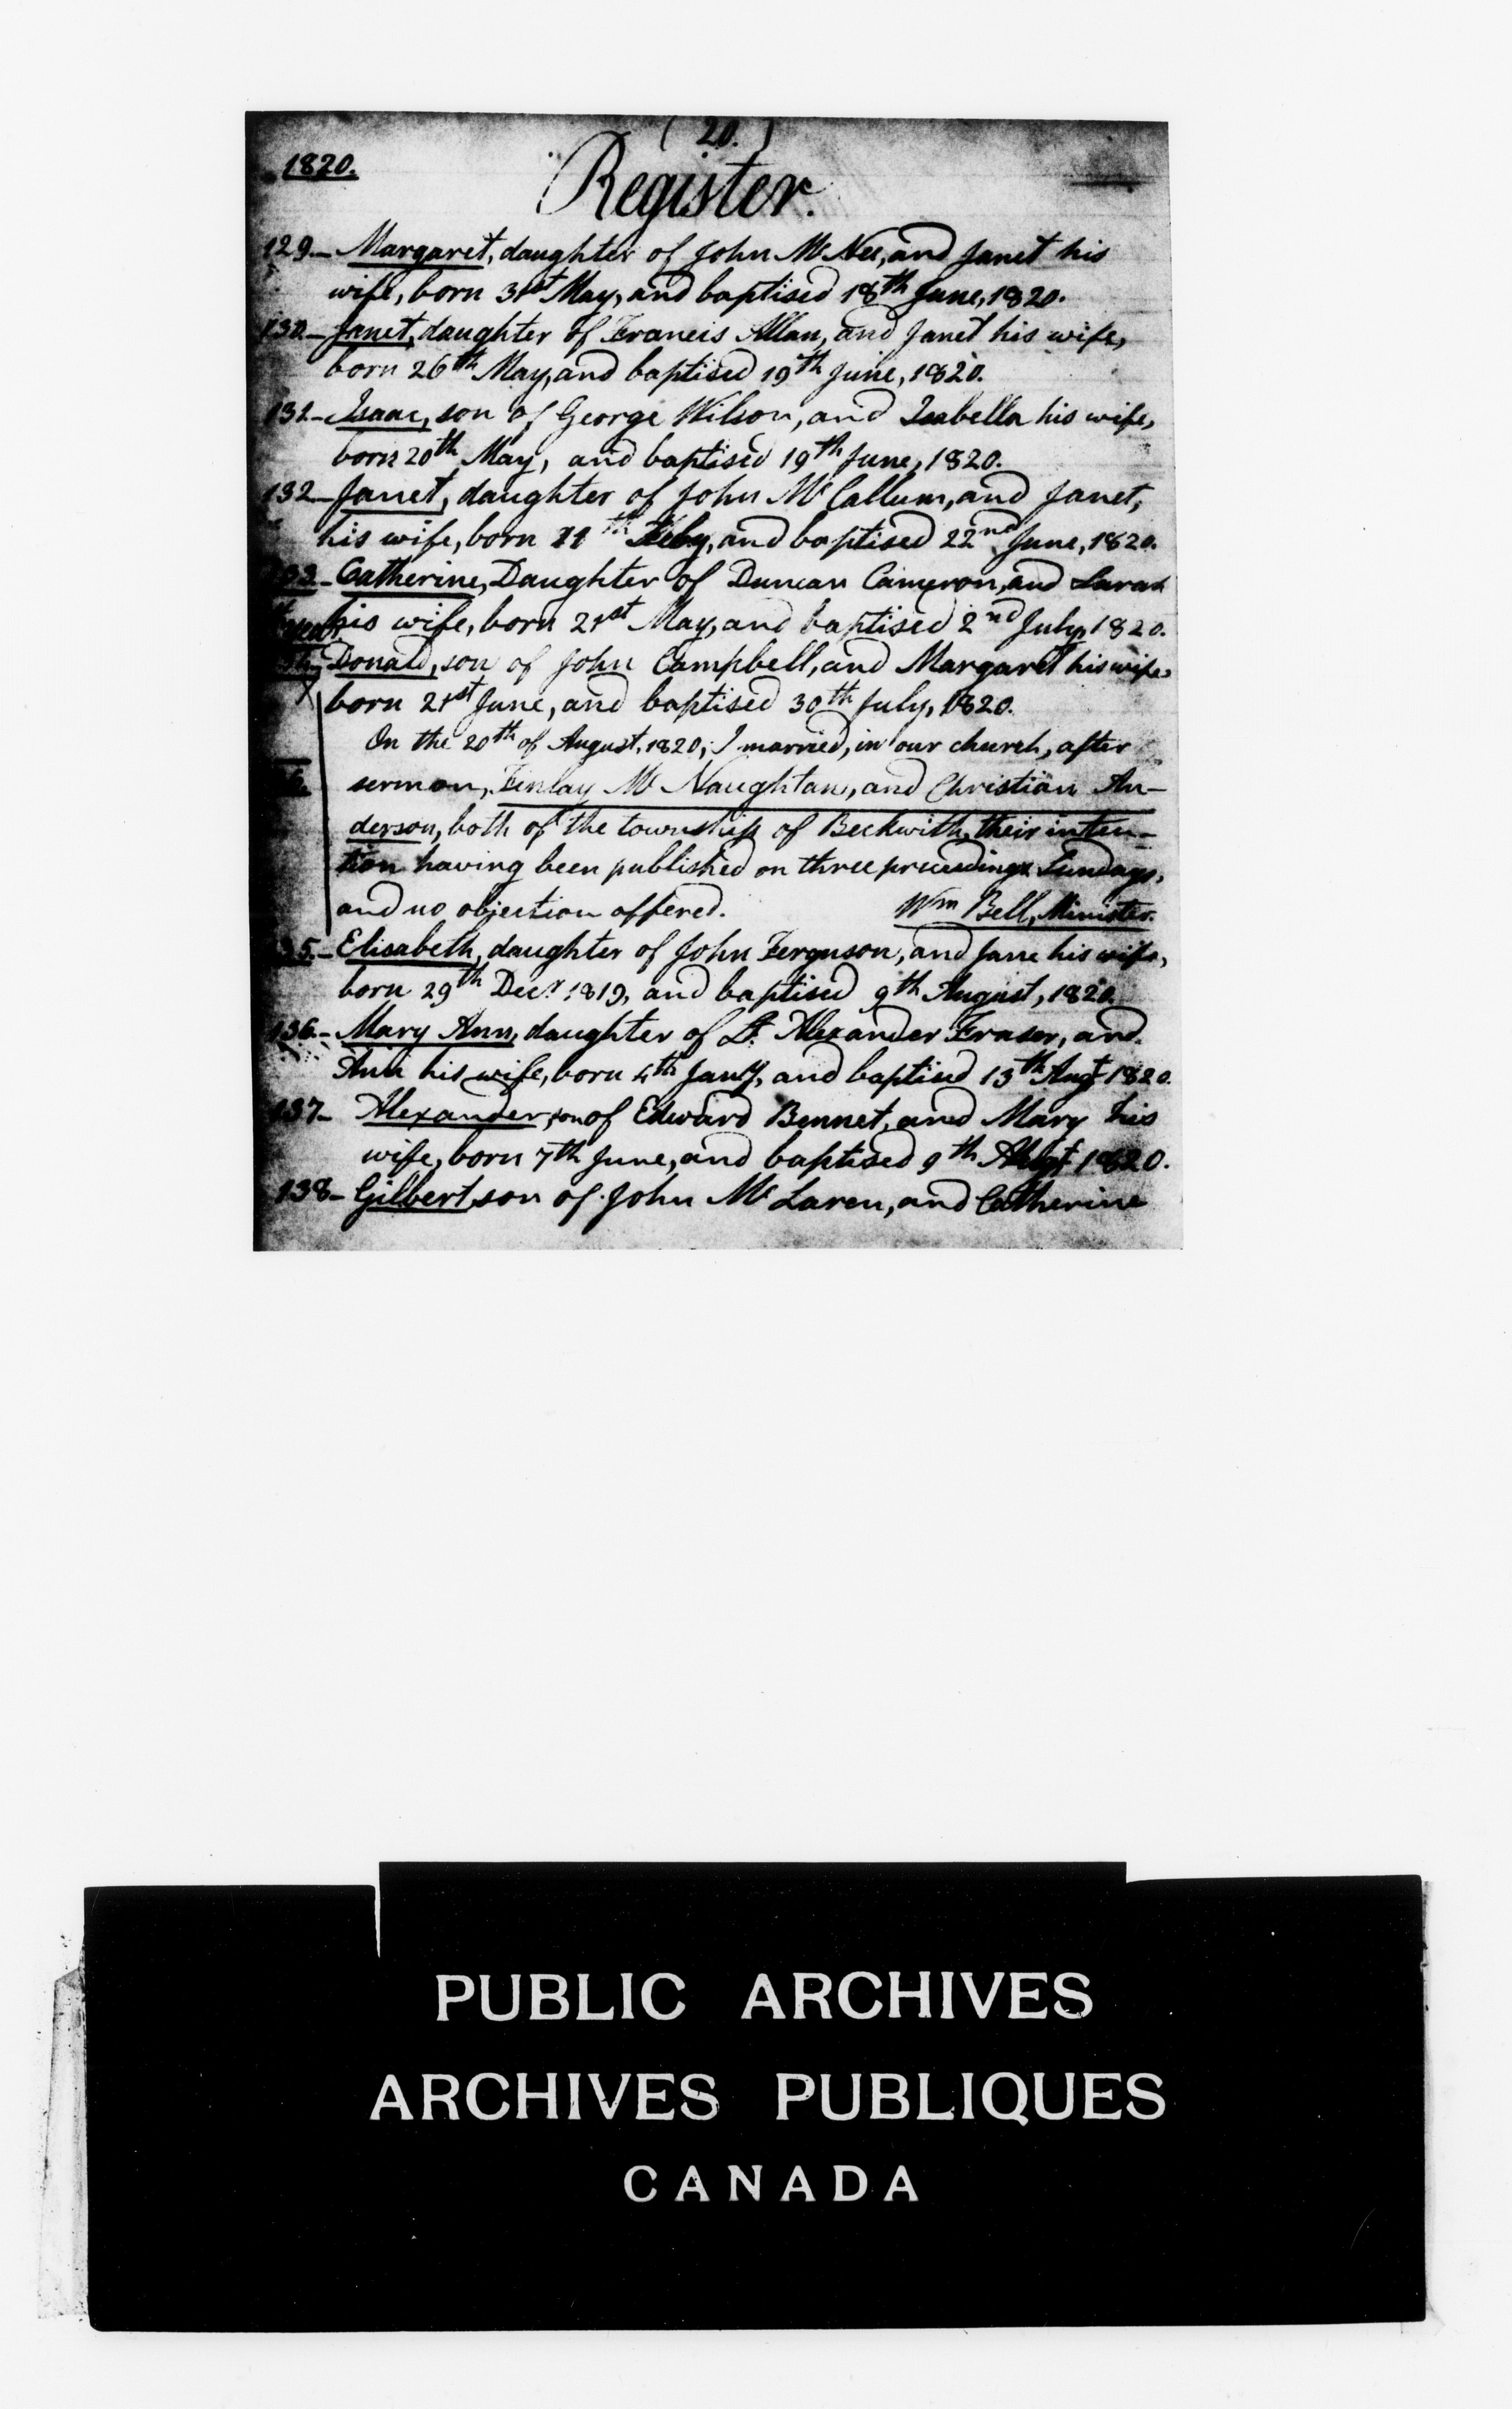 (20.)
1820.
Register.
129.- Margaret, daughter of John McNee, and Janet his
wife, born 31st May, and baptised 18th June, 1820.
130- Janet, daughter of Francis Allan, and Janet his wife,
born 26th May, and baptised 19th June, 1820.
131- Isaac, son of George Wilson, and Isabella his wife,
born 20th May, and baptised 19th June, 1820.
132- Janet, daughter of John McCallum, and Janet,
his wife, born 11th Feby, and baptised 22nd June, 1820.
133- Catherine, Daughter of Duncan Cameron, and Sarah
his wife, born 21st May, and baptised 2nd July, 1820.
Donald, son of John Campbell, and Margaret his wife,
born 21st June, and baptised 30th July, 1820.
On the 20th of August, 1820, I married, in our church, after
sermon, Finlay McNaughtan, and Christian An-
derson, both of the township of Beckwith, their inten-
tion having been published on three preceeding Sundays,
and no objection offered. Wm Bell, Minister.
135.- Elisabeth, daughter of John Ferguson, and Jane his wife,
born 29th Decr 1819, and baptised 9th August, 1820.
136- Mary Ann, daughter of Lt. Alexander Fraser, and
Ann his wife, born 4th Jany, and baptised 13th Augt 1820.
137- Alexander, son of Edward Bennet, and Mary his
wife, born 7th June, and baptised 9th Augt 1820.
138- Gilbert, son of John McLaren, and Catherine
PUBLIC ARCHIVES
ARCHIVES PUBLIQUES
CANADA